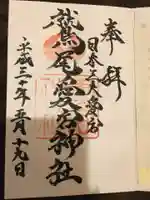 奉拝
日本三大愛宕
鷲尾愛宕神社
平成三十一年一月十九日